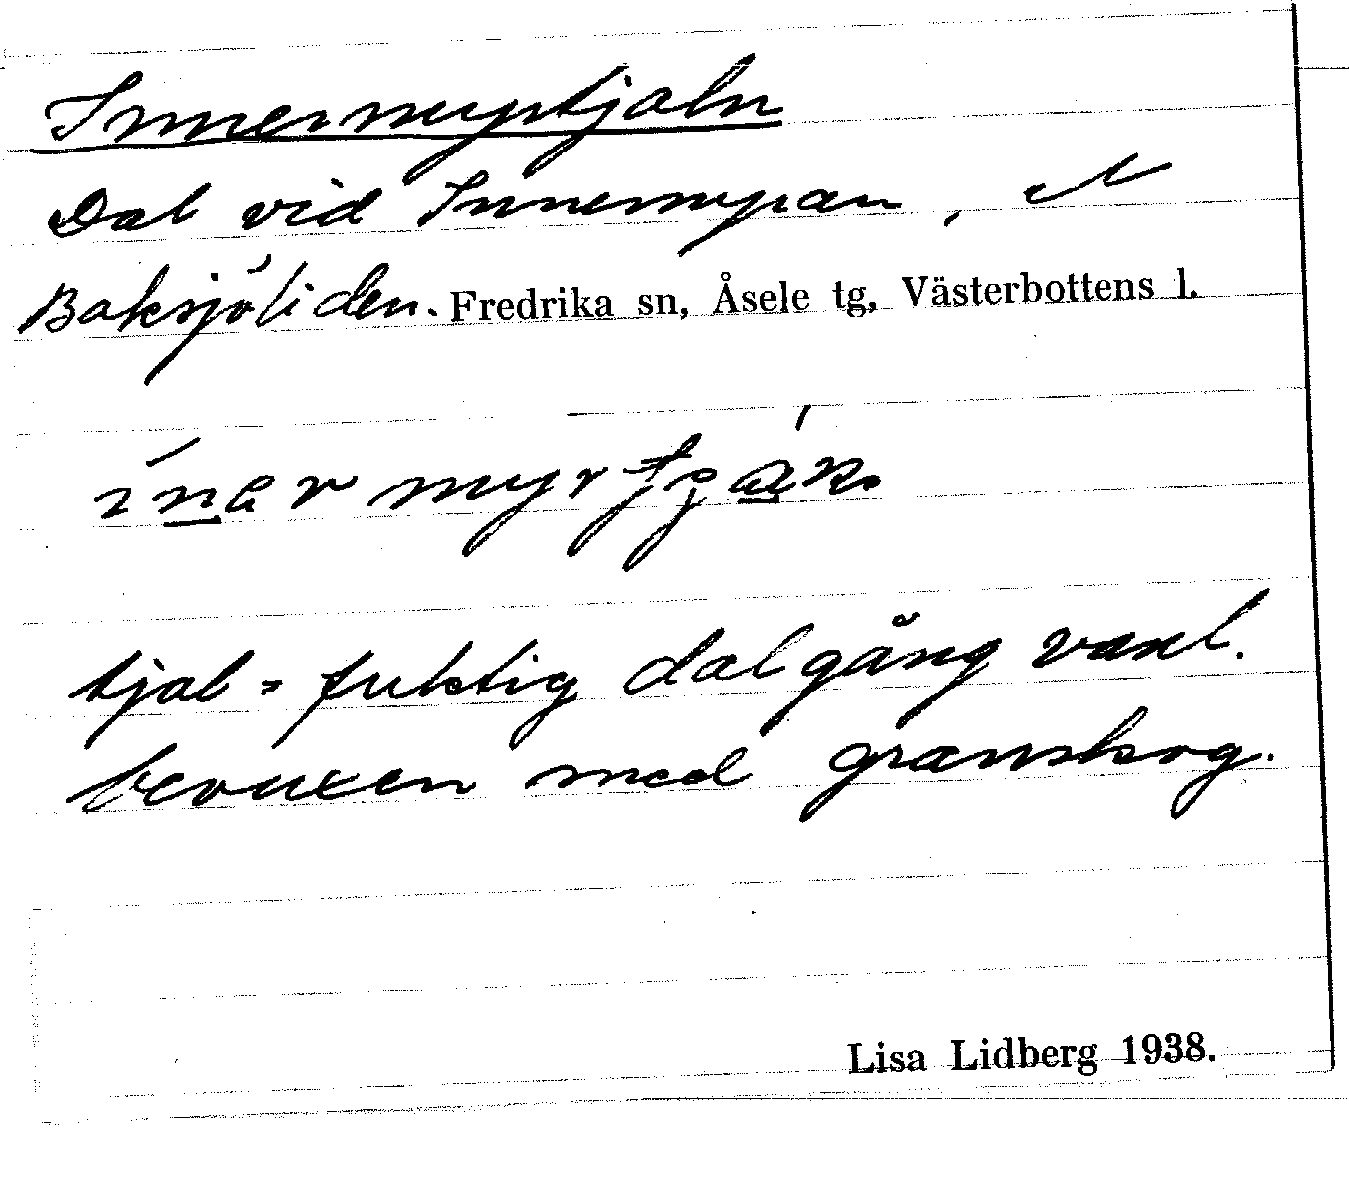 Innermyrtjaln
Dal vid Innermyran, N
Baksjöliden. Fredrika sn, Åsele tg, Västerbottens l.
tjal = fuktig dalgång vanl.
bevuxen med granskog.
Lisa Lidberg 1938.